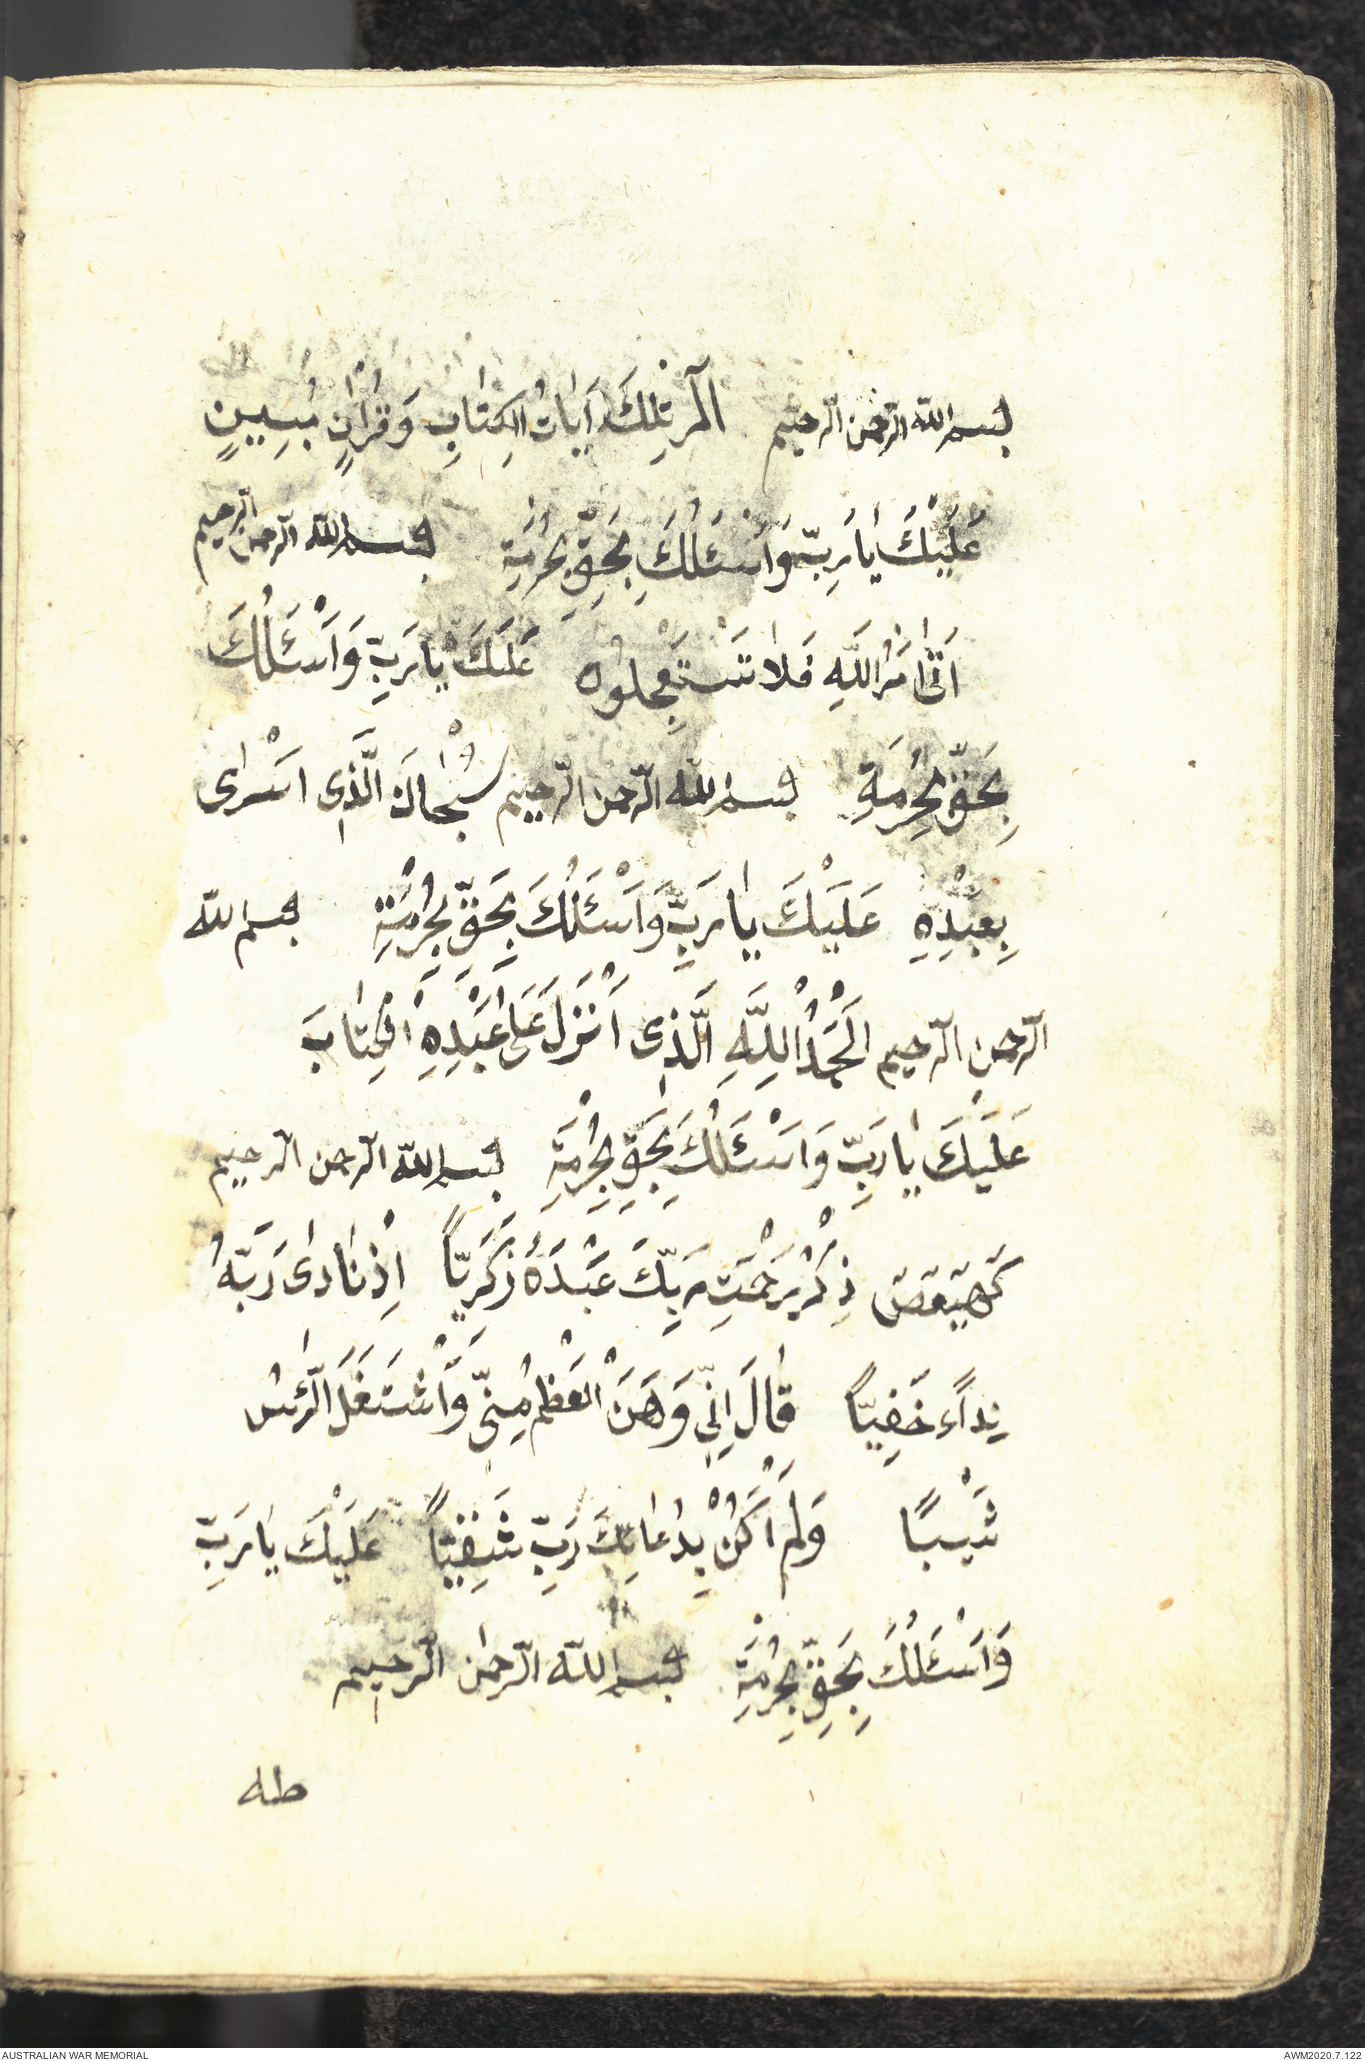 بسم الله الرحمن الرحيم الٓمر تِلكَ اٰيَاتُ الكِتٰابِ وَقُرْاٰنٍ مُبِينٍ
عَلَيْكَ يٰا رَبِّ وَاَسْئَلُكَ بِحَقِّ بِحُرْمَةِ بسم الله الرحمن الرحيم
اَتٰى اَمْرُ اللّٰهِ فَلا تَسْتَعْجِلوُه عَلَيْكَ يٰا رَبِّ وَاَسْئَلُكَ
بِحَقِّ بِحُرْمَةِ بسم الله الرحمن الرحيم سُبْحانَ الَّذِى اَسْرٰى
بِعَبْدِهِ عَلَيْكَ يٰا رَبِّ وَاَسْئَلُكَ بِحَقِّ بِحُرْمَةِ بسم الله
الرحمن الرحيم الْحَمْدُ لِلّٰهِ الَّذِى اَنْزَلَ عَلٰى عَبْدِهِ الْكِتٰابَ
عَلَيْكَ يٰا رَبِّ وَاَسْئَلُكَ بِحَقِّ بِحُرْمَةِ بسم الله الرحمن الرحيم
كٓهيٓعٓصٓ ذِكْرُ رَحْمَتِ رَبِّكَ عَبْدَهُ زَكَرِيّاً اِذْ نٰادٰى رَبَّهُ
نِداًء خَفِيّاً قٰالَ اِنِّى وَهَنَ الْعَظْمُ مِنِّى وَاْشتَغَلَ الرَّئسُ
شَيْبًا وَلَمْ اَكُنْ بِدُعٰائِكَ رَبِّ شَقِيّاً عَلَيْكَ يٰا رَبِّ
وَاَسْئَلُكَ بِحَقِّ بِحُرْمَةِ بسم الله الرحمٰن الرحيم
طه
AUSTRALIAN WAR MEMORIAL AWM2020.7.122